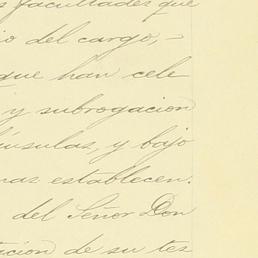 s facultades que
io del cargo,-
que han cele
y subrogacion
áusulas, y bajo
mas establecen.
del Señor Don
tacion de su tes